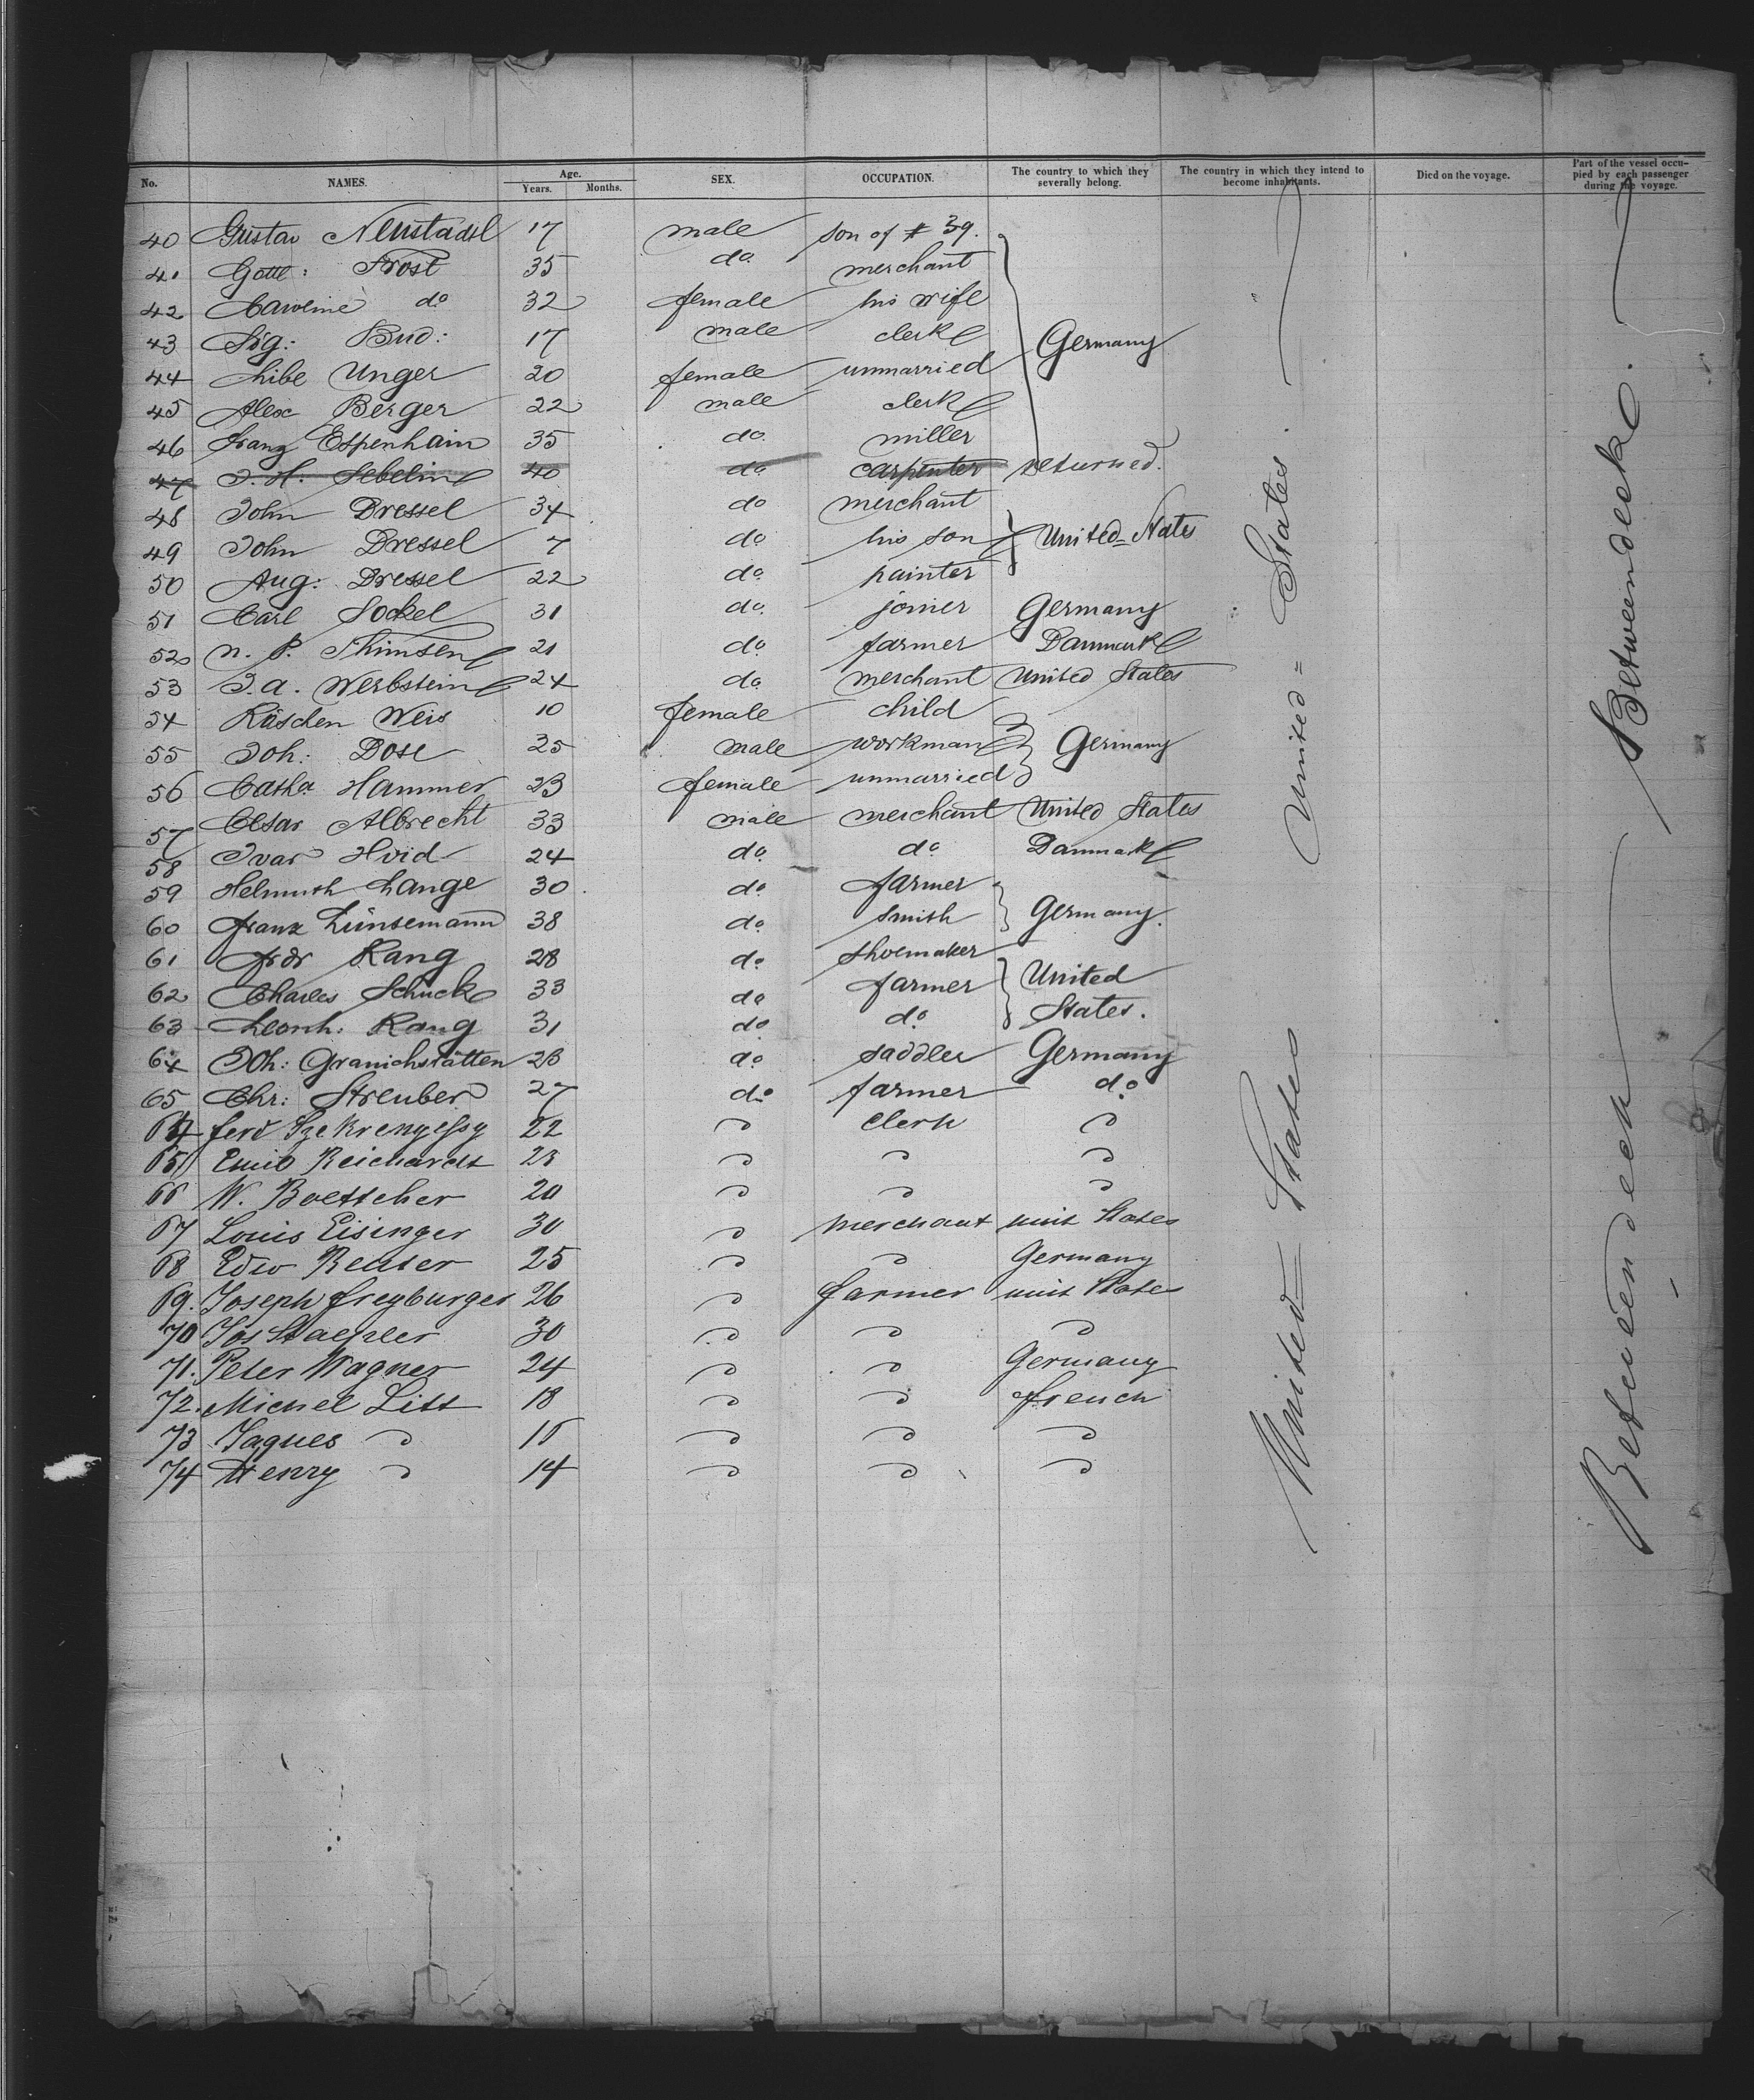 No. NAMES. Age. Years. Months. SEX. OCCUPATION. The country to which they severally belong. The country in which they intend to become inhabitants. Died on the voyage. Part of the vessel occupied by each passenger during the voyage.
40 Gustav Neustadtl 17 male son of # 39.
41 Gottl: Frost 35 do merchant
42 Caroline do 32 female his wife
43 Sig: Bud: 17 male clerk Germany
44 Libe Unger 20 female unmarried
45 Alex Berger 22 male clerk
46 Franz Espenhain 35 do miller
47 J. H. Sebelin 40 do carpenter returned.
48 John Dressel 34 do merchant
49 John Dressel 7 do his son United=States
50 Aug: Dressel 22 do painter
51 Carl Sockel 31 do joiner Germany
52 N. P. Thimsen 21 do farmer Danmark
53 J. A. Werbstein 24 do merchant United States
54 Röschen Weis 10 female child
55 Joh: Dose 25 male workman Germany
56 Catha Hammer 23 female unmarried
57 Cesar Albrecht 33 male merchant United States
58 Ivar Hvid 24 do do Danmark
59 Helmuth Lange 30 do farmer
60 Franz Linsemann 38 do smith Germany.
61 Frdr Rang 28 do shoemaker
62 Charles Schuck 33 do farmer United
63 Leonh: Rang 31 do do States.
64 Joh: Granichstätten 23 do saddler Germany
65 Chr: Streuber 27 do farmer do
64 Ferd Szekrenyessy 22 " clerk "
65 Emil Reichardt 28 " " "
66 W. Boettcher 20 " " "
67 Louis Eisinger 30 " merchant unit States
68 Edw Reuter 25 " " Germany
69. Joseph Freyburger 26 " farmer unit States
70 Jos Staehler 30 " " "
71. Peter Wagner 24 " " Germany
72. Michel Litt 18 " " french
73 Jaques " " " "
74 Henry " 14 " " "
United = States.
United = States
Betweendeck.
Betweendeck